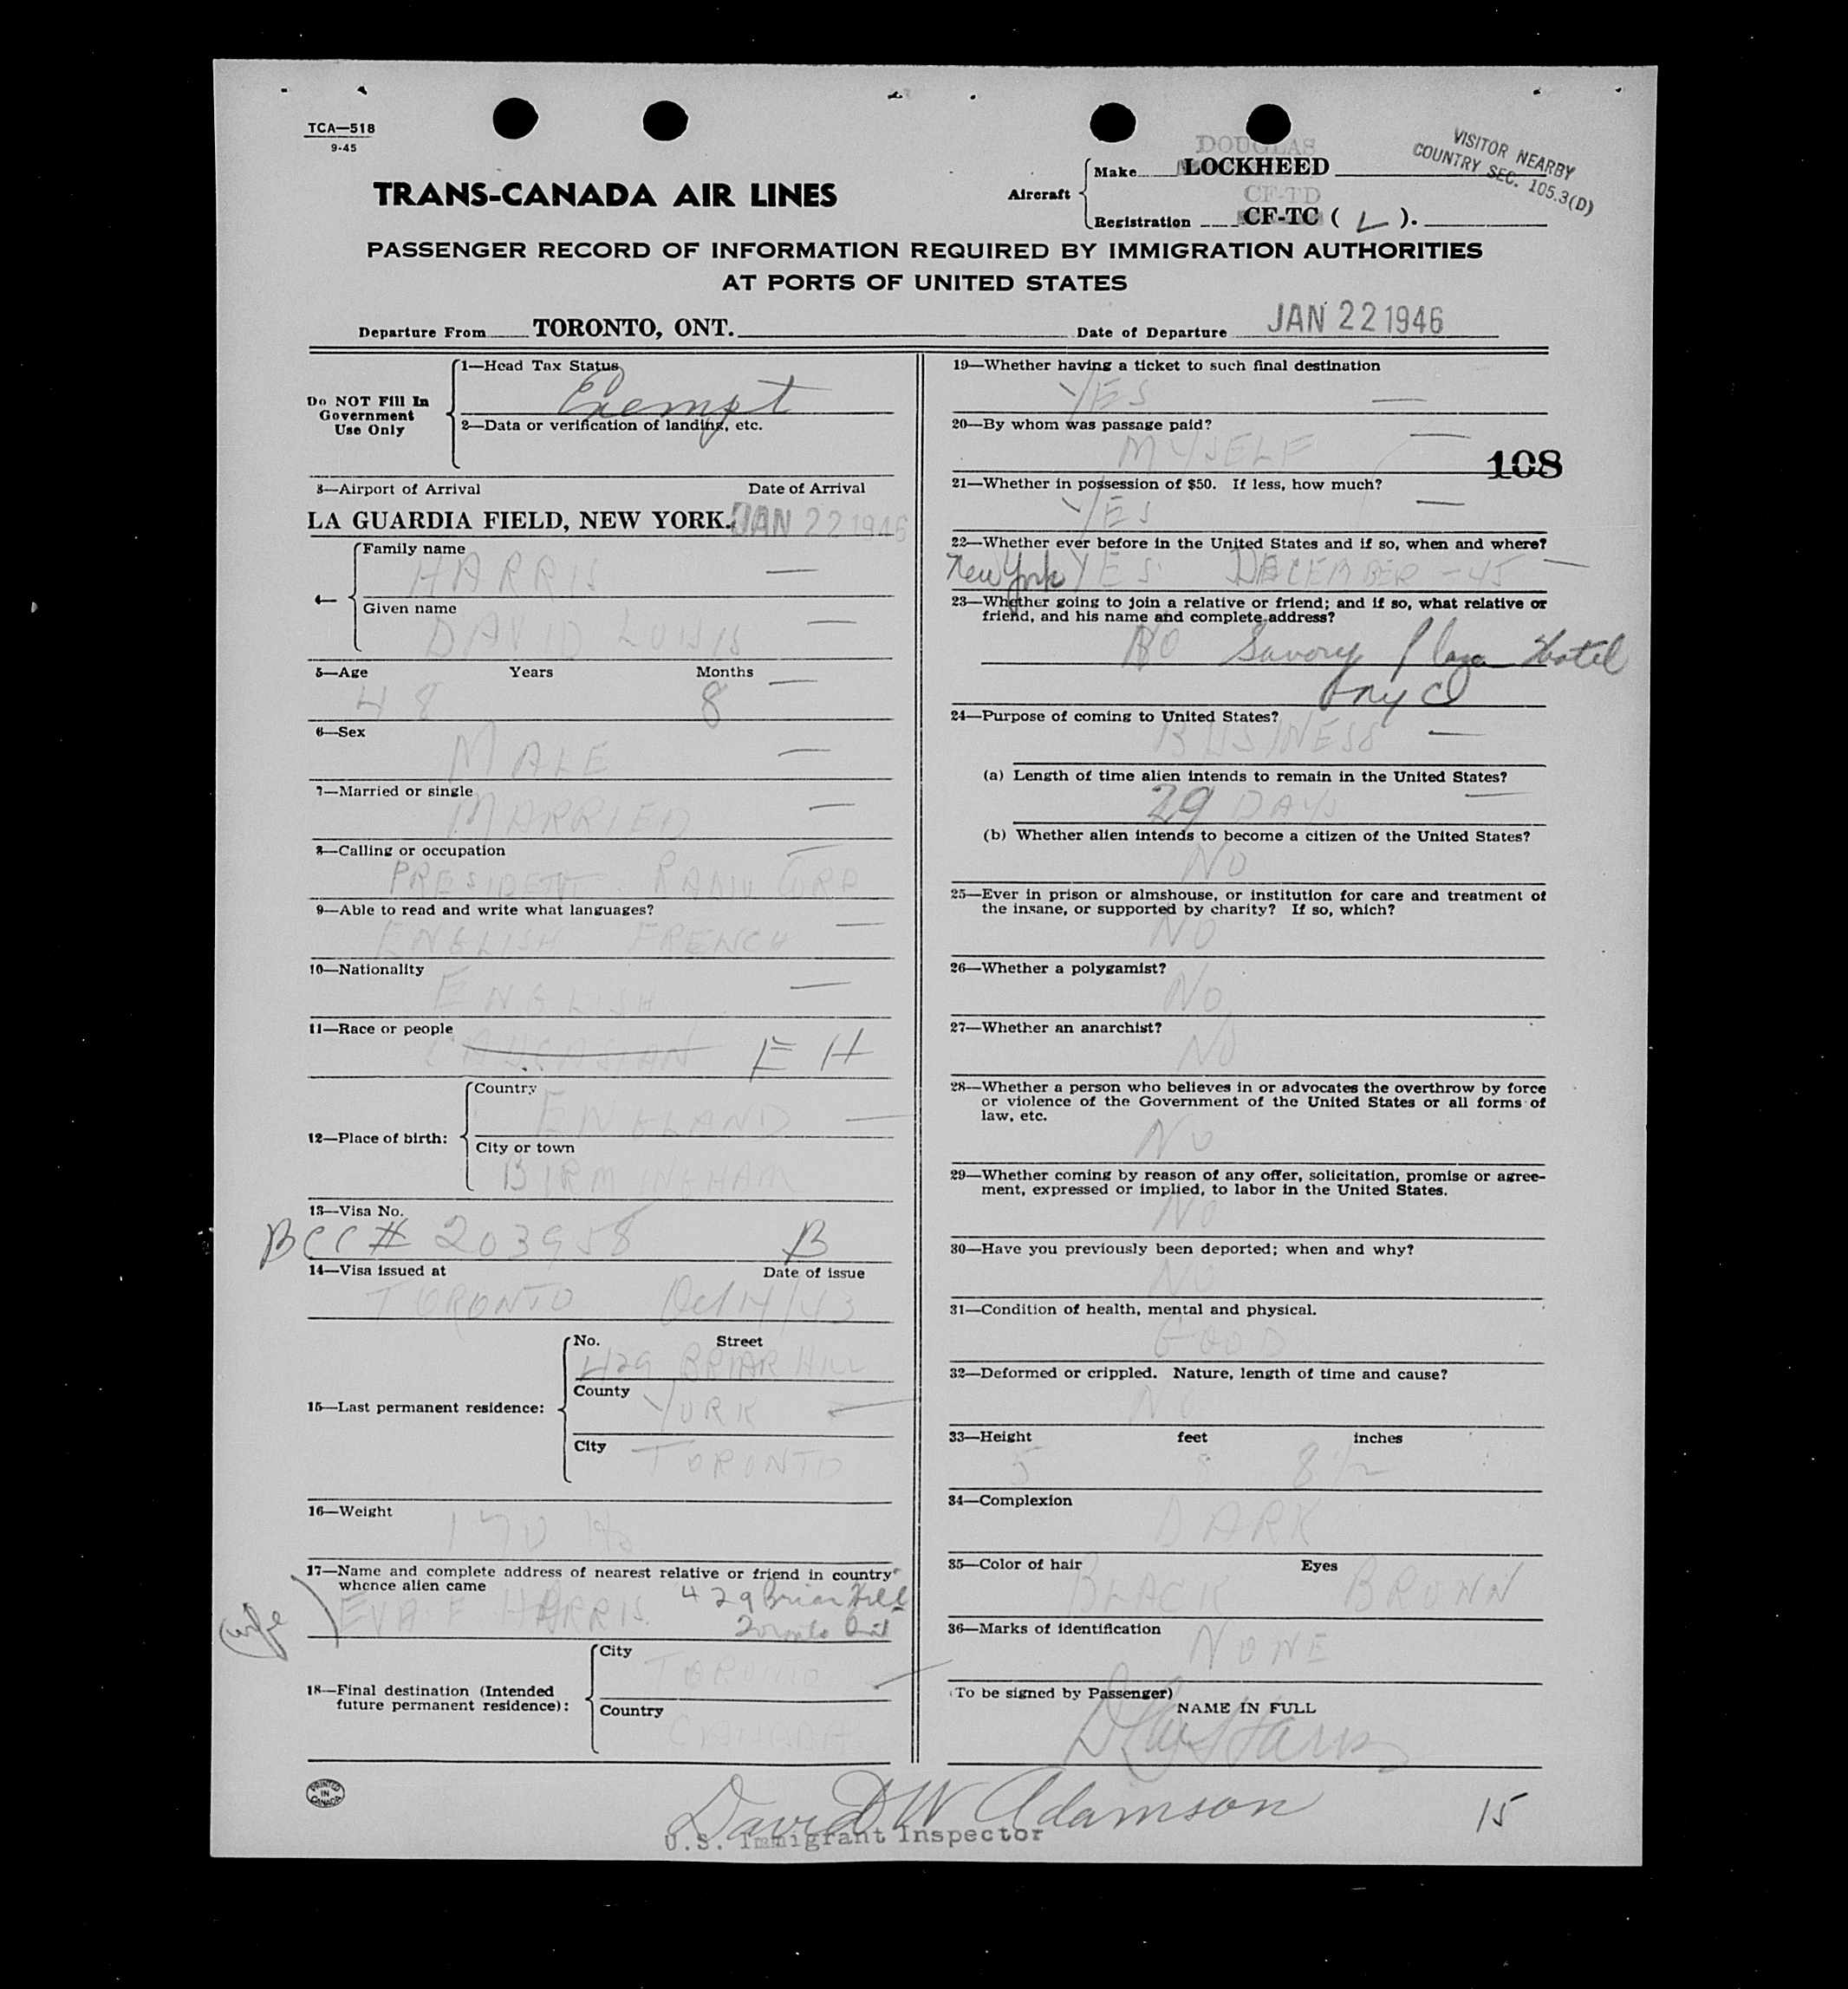 TCA—518
9-45
TRANS-CANADA AIR LINES
Aircraft
DOUGLAS
Make LOCKHEED
CF-TD
Registration CF-TC ( L ).
VISITOR NEARBY
COUNTRY SEC. 105.3(D)
PASSENGER RECORD OF INFORMATION REQUIRED BY IMMIGRATION AUTHORITIES
AT PORTS OF UNITED STATES
Departure From TORONTO, ONT.
Date of Departure JAN 22 1946
Do NOT Fill In
Government
Use Only
1—Head Tax Status
Exempt
2—Data or verification of landing, etc.
3—Airport of Arrival Date of Arrival
LA GUARDIA FIELD, NEW YORK. JAN 22 1946
4—
Family name
HARRIS
Given name
DAVID LOUIS
5—Age Years Months
48 8
6—Sex
MALE
7—Married or single
MARRIED
8—Calling or occupation
PRESIDENT CORP
9—Able to read and write what languages?
ENGLISH FRENCH
10—Nationality
ENGLISH
11—Race or people
CAUCASIAN E H
12—Place of birth:
Country
ENGLAND
City or town
BIRMINGHAM
13—Visa No.
BCC # 203958 B
14—Visa issued at Date of issue
TORONTO Oct 14/43
15—Last permanent residence:
No. Street
429 BRIAR HILL
County
YORK
City TORONTO
16—Weight
170 lbs
17—Name and complete address of nearest relative or friend in country
whence alien came
(wife) EVA F HARRIS. 429 Briar Hill
Toronto Ont
18—Final destination (Intended
future permanent residence):
City
TORONTO
Country
CANADA
PRINTED
IN
CANADA
19—Whether having a ticket to such final destination
YES
20—By whom was passage paid?
MYSELF
108
21—Whether in possession of $50. If less, how much?
YES
22—Whether ever before in the United States and if so, when and where?
New York YES DECEMBER - 45
23—Whether going to join a relative or friend; and if so, what relative or
friend, and his name and complete address?
NO Savoy Plaza Hotel
NYC
24—Purpose of coming to United States?
BUSINESS
(a) Length of time alien intends to remain in the United States?
29 DAYS
(b) Whether alien intends to become a citizen of the United States?
NO
25—Ever in prison or almshouse, or institution for care and treatment of
the insane, or supported by charity? If so, which?
NO
26—Whether a polygamist?
NO
27—Whether an anarchist?
NO
28—Whether a person who believes in or advocates the overthrow by force
or violence of the Government of the United States or all forms of
law, etc.
NO
29—Whether coming by reason of any offer, solicitation, promise or agree-
ment, expressed or implied, to labor in the United States.
NO
30—Have you previously been deported; when and why?
NO
31—Condition of health, mental and physical.
GOOD
32—Deformed or crippled. Nature, length of time and cause?
NO
33—Height feet inches
5 8 1/2
34—Complexion
DARK
35—Color of hair Eyes
BLACK BROWN
36—Marks of identification
NONE
(To be signed by Passenger)
NAME IN FULL
D Louis Harris
David W Adamson
U.S. Immigrant Inspector
15